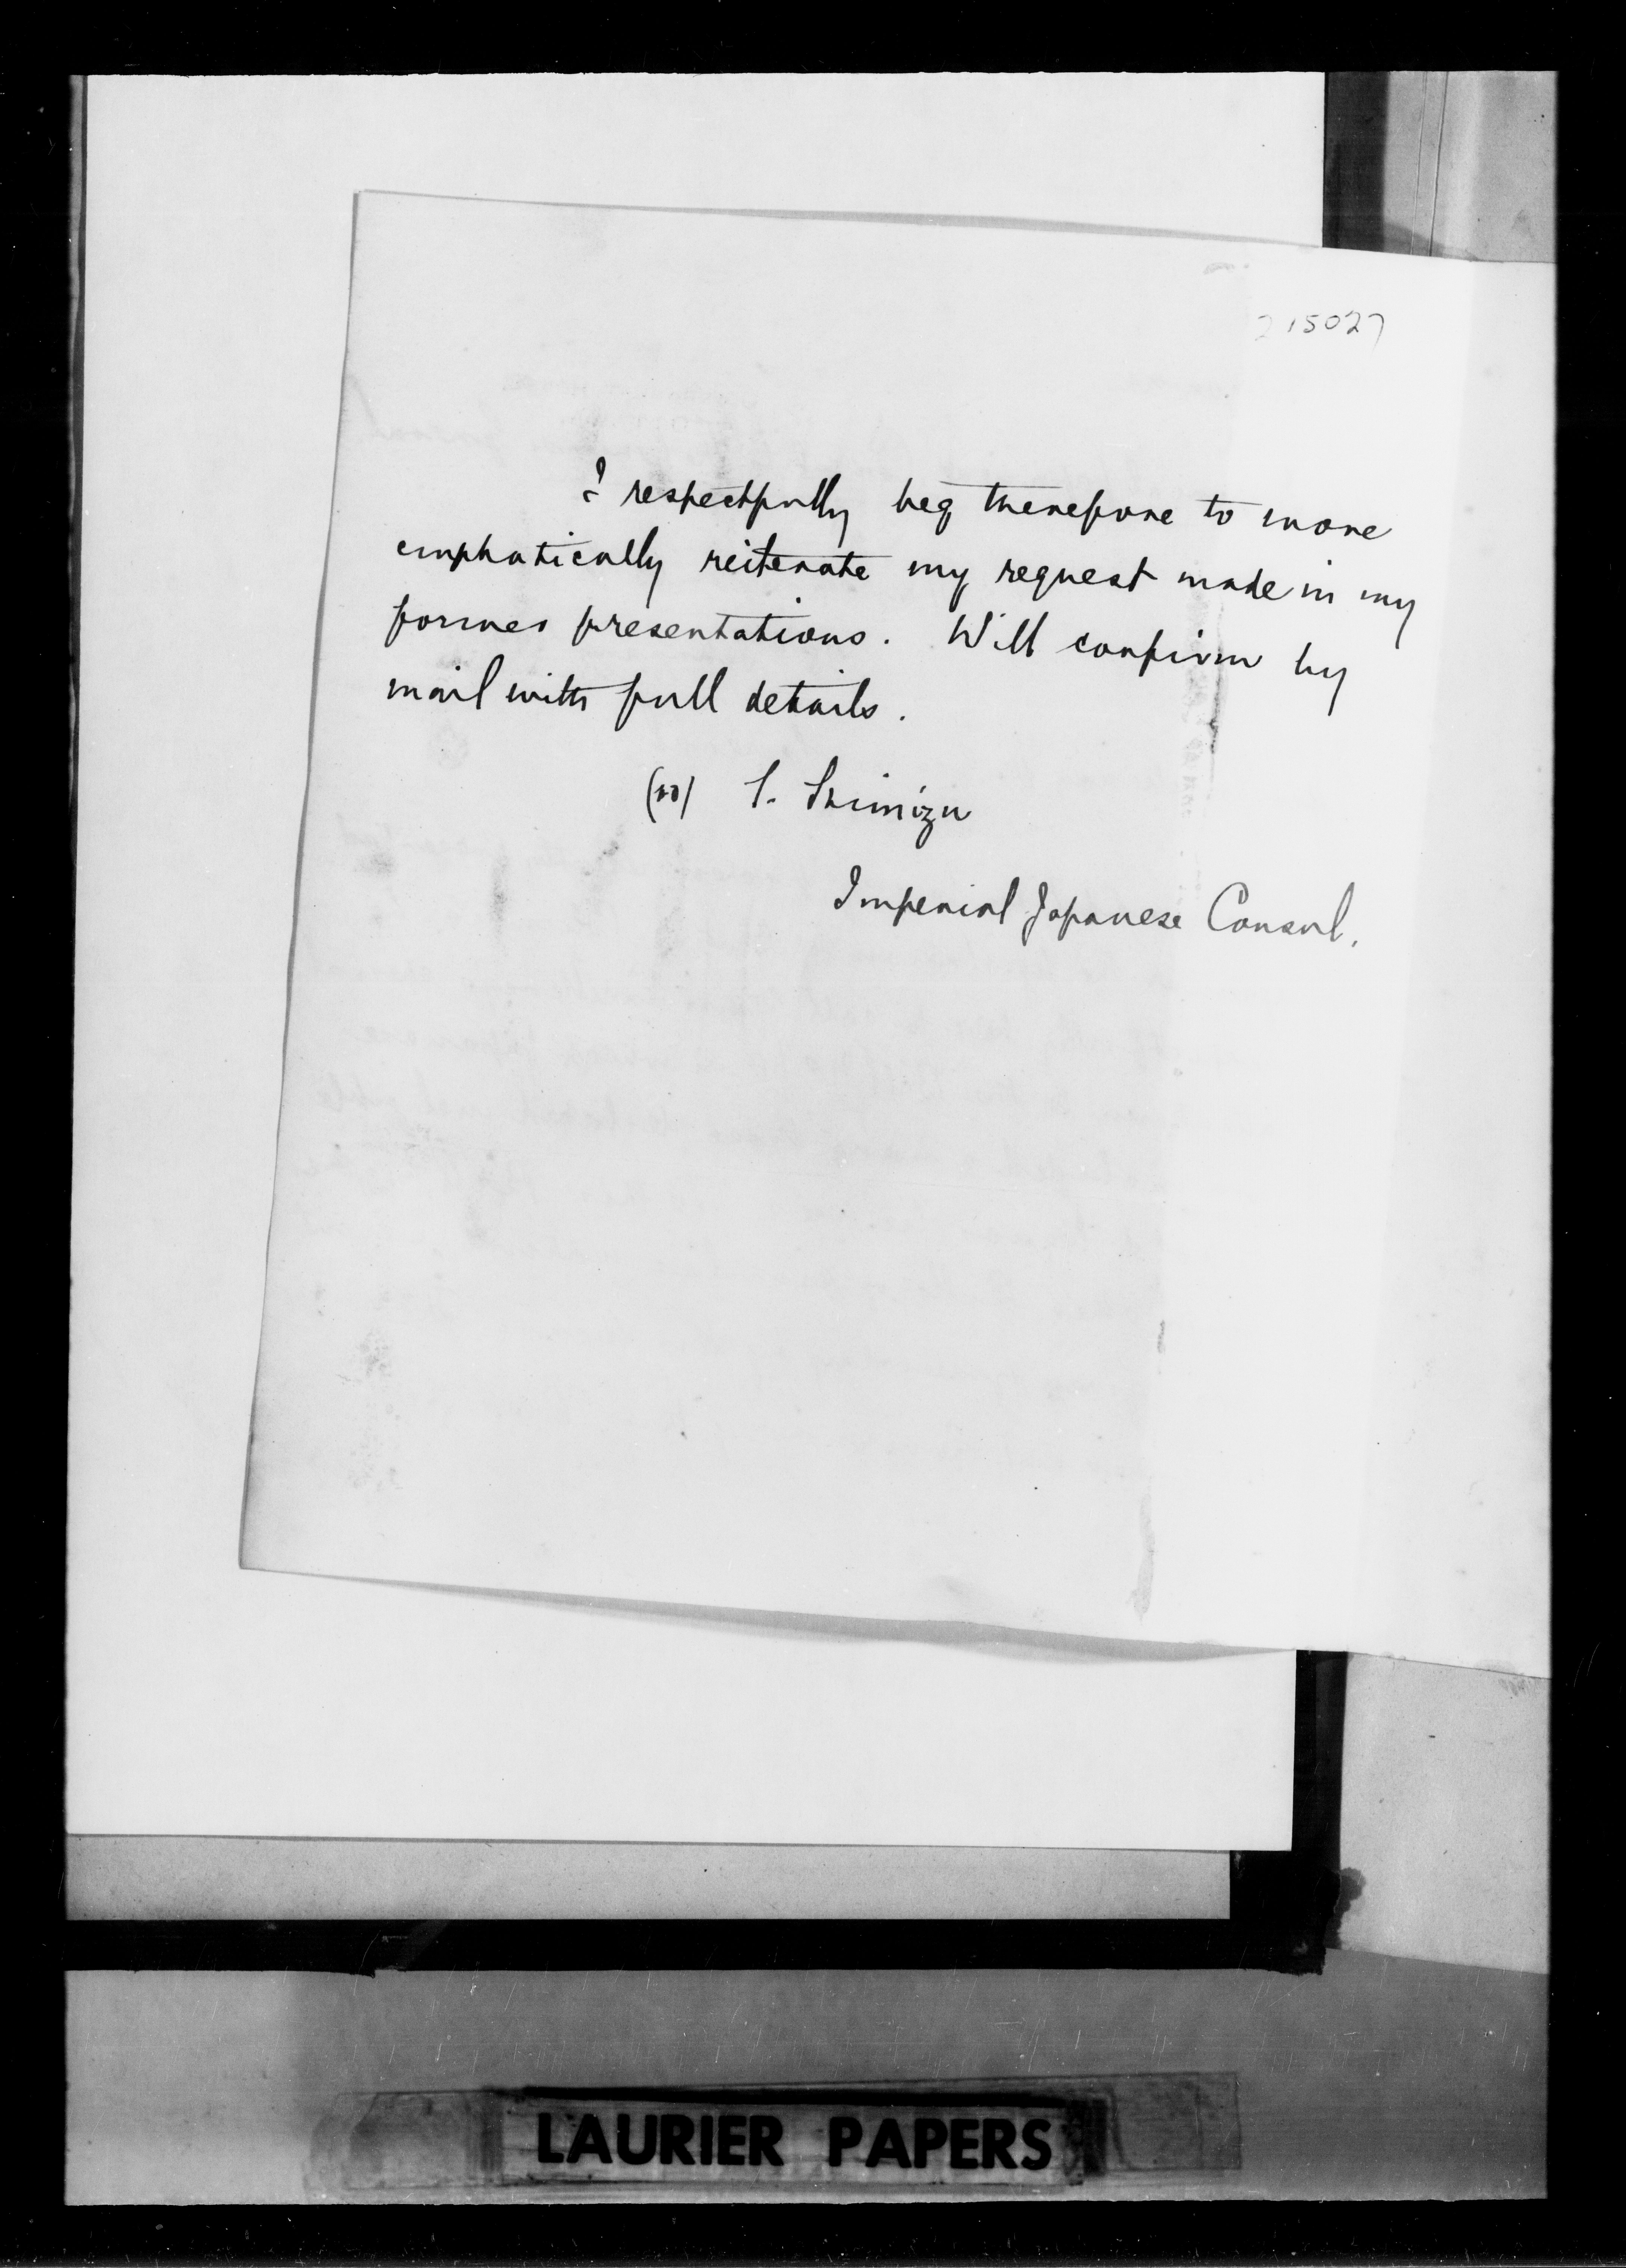 215027
I respectfully beg therefore to more
emphatically reiterate my request made in my
former presentations. Will confirm by
mail with full details.
(sd) S. Shimizu
Imperial Japanese Consul.
LAURIER PAPERS